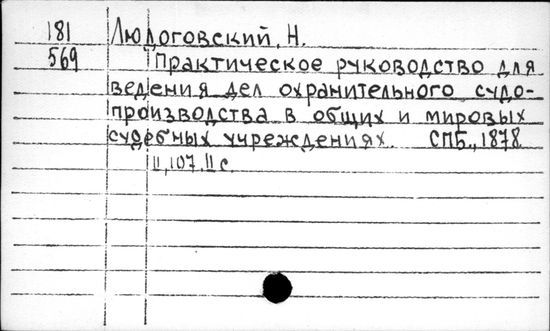 181 Людоговский, Н.
569 Практическое руководство для
ведения дел охранительного судо-
производства в общих и мировых
судебных учреждениях. СПБ., 1878.
II, 107, II с.